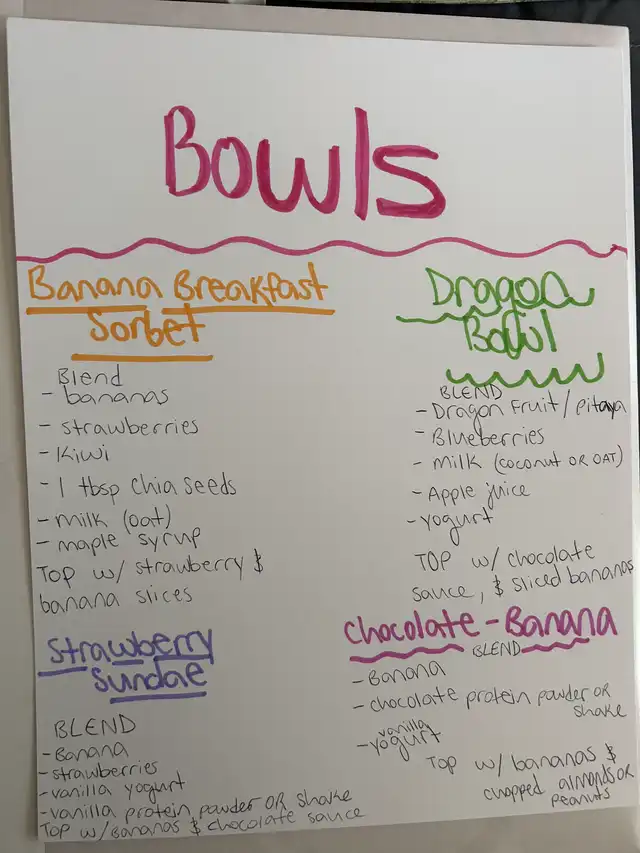 Bowls
Banana Breakfast
Sorbet
Blend
- bananas
- strawberries
- Kiwi
- 1 tbsp chia seeds
- milk (oat)
- maple syrup
Top w/ strawberry &
banana slices
Dragon
Bowl
BLEND
- Dragon Fruit / Pitaya
- Blueberries
- milk (coconut OR OAT)
- Apple juice
- yogurt
TOP w/ chocolate
sauce, & sliced bananas
Strawberry
Sundae
BLEND
- Banana
- strawberries
- vanilla yogurt
- vanilla protein powder OR shake
Top w/ Bananas & chocolate sauce
Chocolate - Banana
BLEND
- Banana
- chocolate protein powder OR
shake
vanilla
- yogurt
Top w/ bananas &
chopped almonds OR
peanuts